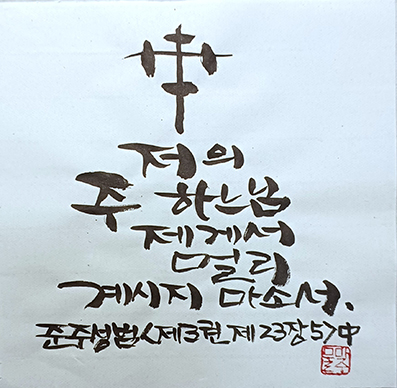 저의
주 하느님
제게서
멀리
계시지 마소서.
준주성범<제3권 제 23장 5>中